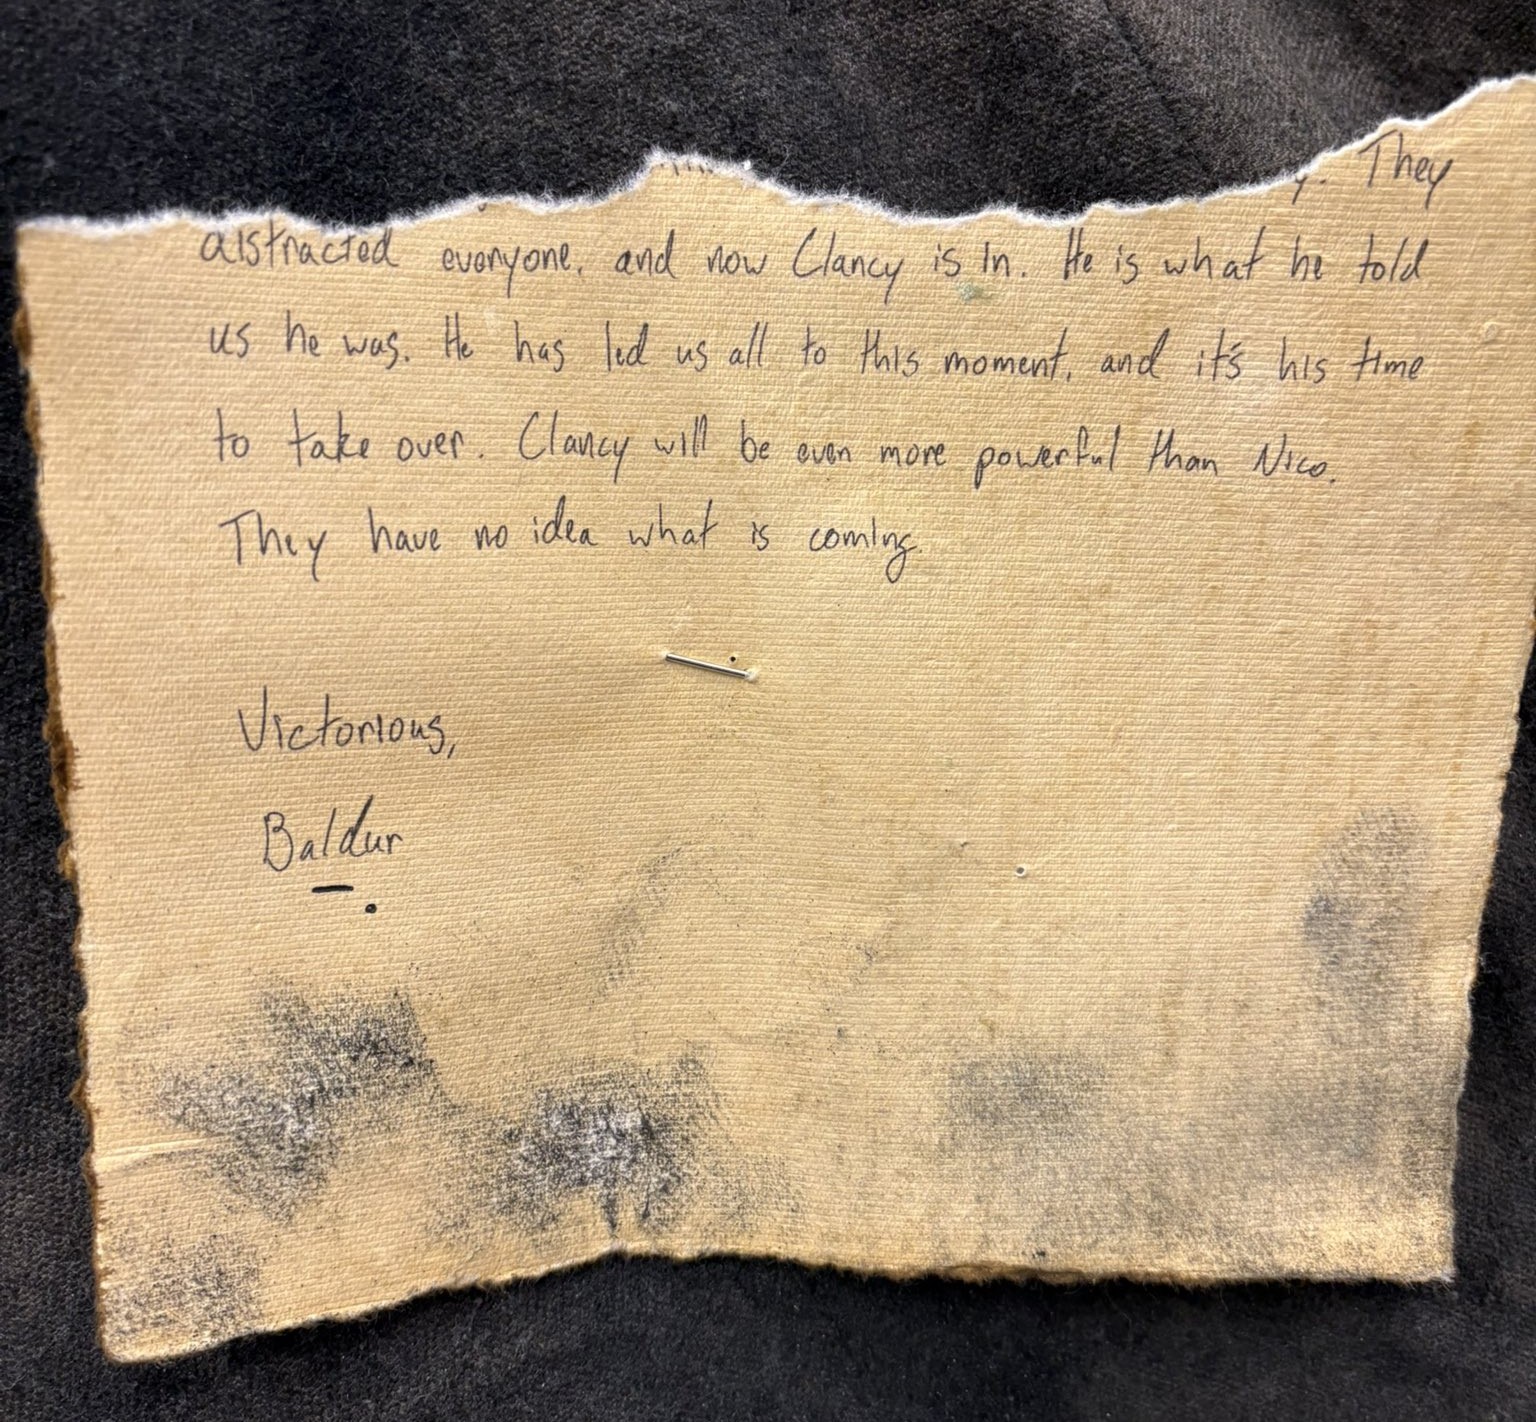 They
distracted everyone, and now Clancy is in. He is what he told
us he was. He has led us all to this moment, and it's his time
to take over. Clancy will be even more powerful than Nico.
They have no idea what is coming.
Victorious,
Baldur